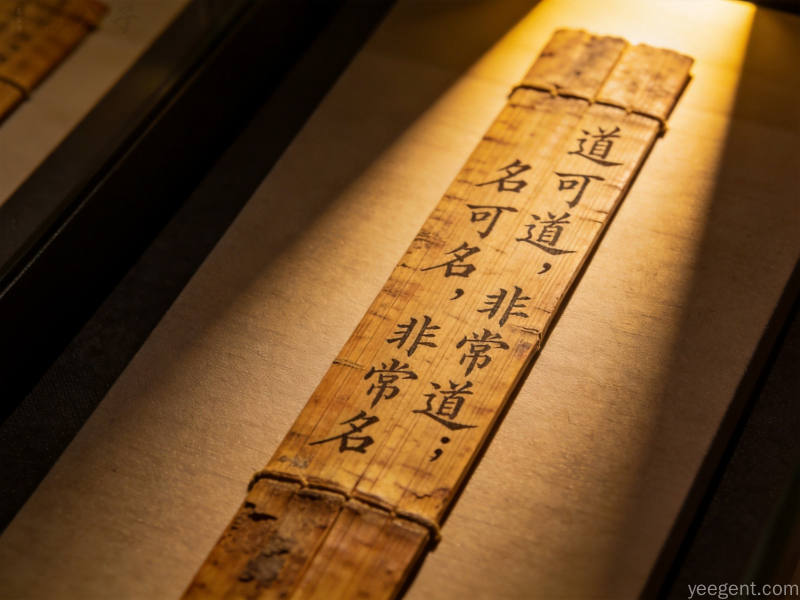 道可道，非常道；
名可名，非常名
yeegent.com